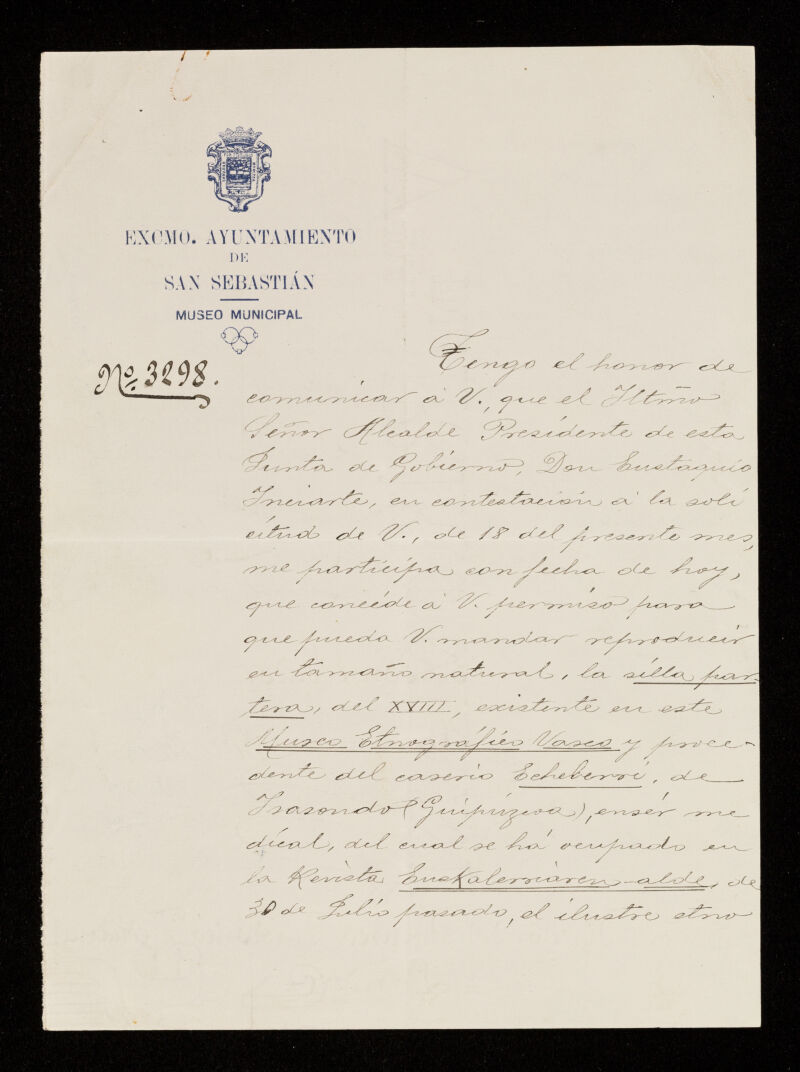 EXCMO. AYUNTAMIENTO
DE
SAN SEBASTIÁN
MUSEO MUNICIPAL
Nº. 3298.
Tengo el honor de
comunicar á V., que el Iltmo
Señor Alcalde Presidente de esta
Junta de Gobierno, Don Eustaquio
Inciarte, en contestación á la soli
citud de V., de 18 del presente mes,
me participa con fecha de hoy,
que concede á V. permiso para
que pueda V. mandar reproducir
en tamaño natural, la silla par-
tera, del XVIII, existente en este
Museo Etnográfico Vasco y proce-
dente del caserio Echeberri, de
Isasondo (Guipúzcoa), enser me
dical, del cual se há ocupado en
la Revista Euskalerriaren-alde, de
30 de Julio pasado, el ilustre etno